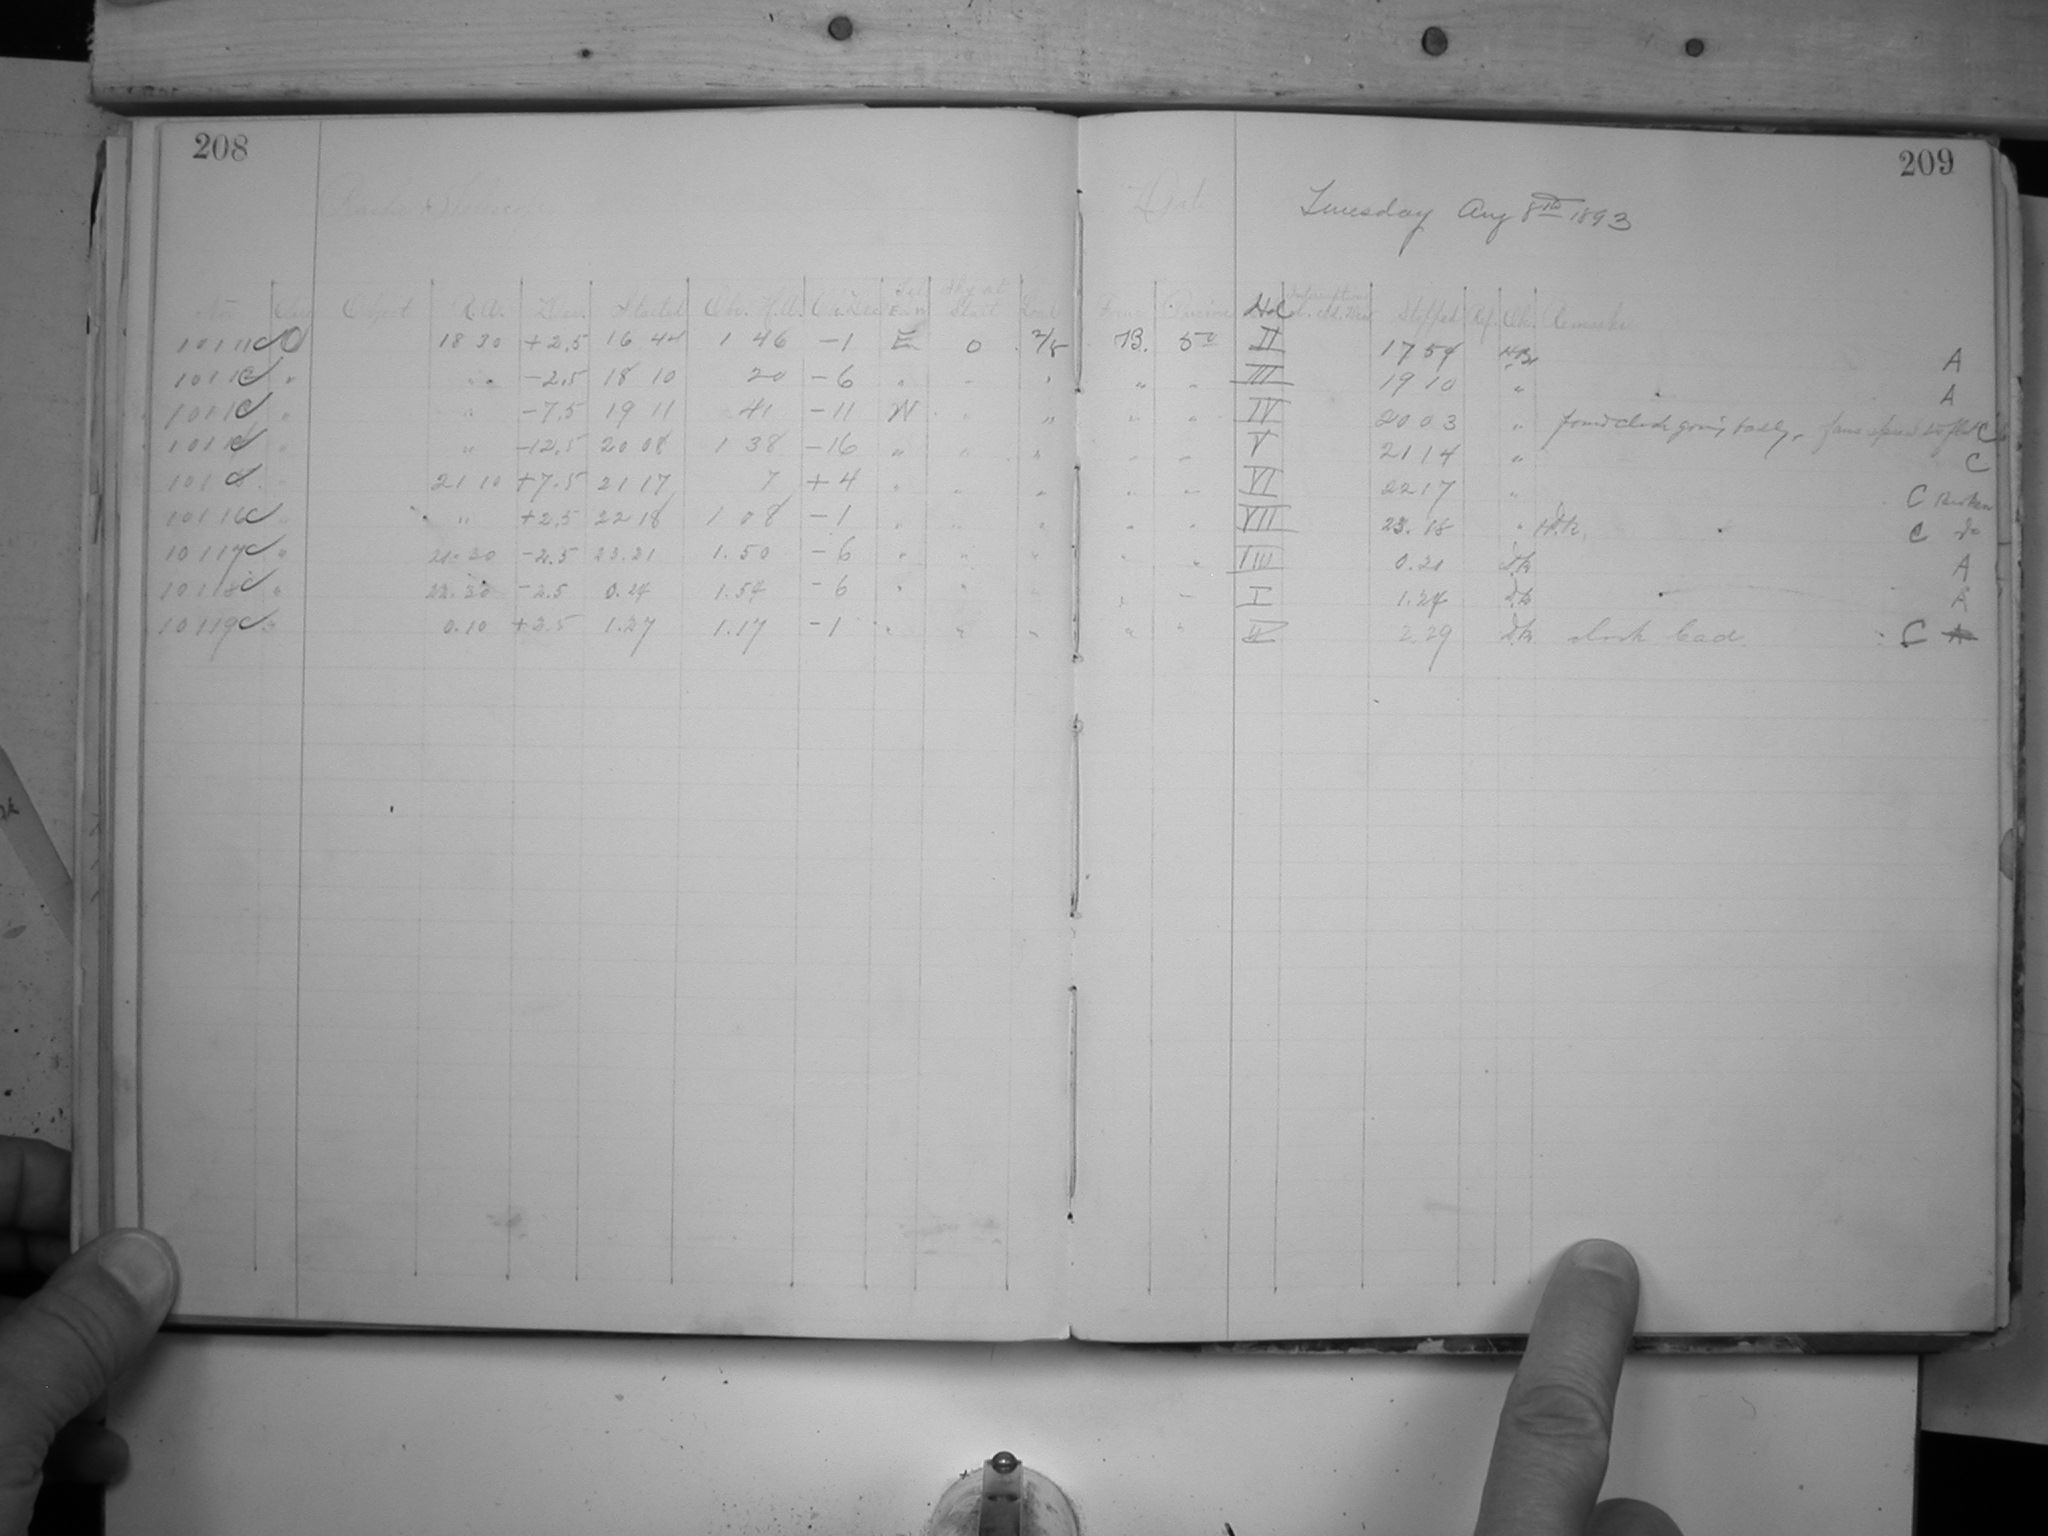 208
209
Bache Telescope
Date
Tuesday Aug 8th 1893
No Class Object R.A. Dec. Started Obs. H.A. Cir. Dec Tel E or W Sky at Start
Focus Hol Inscription Stopped Ob. Remarks
10111 O 18 30 +2.5 16 44 1 46 -1 E 0 2/8 B. 50 II 17 54 A
10112 " " -2.5 18 10 20 -6 " " " " " III 19 10 " A
1011 " " -7.5 19 11 41 -11 W " " " " IV 20 03 " found clock going badly, C
1011 " " -12.5 20 08 1 38 -16 " " " " " V 21 14 " C
1011 " 21 10 +7.5 21 17 7 +4 " " " " " VI 22 17 " C Broken
10116 " " +2.5 22 18 1 08 -1 " " " " " VII 23. 18 " C do
10117 " 21.30 -2.5 23.21 1.50 -6 " " " " " VIII 0.21 A
10118 " 22.30 -2.5 0.24 1.54 -6 " " " " " I 1.24 A
10119 " 0.10 +2.5 1.27 1.17 -1 " " " " " 2.29 clock bad. C A